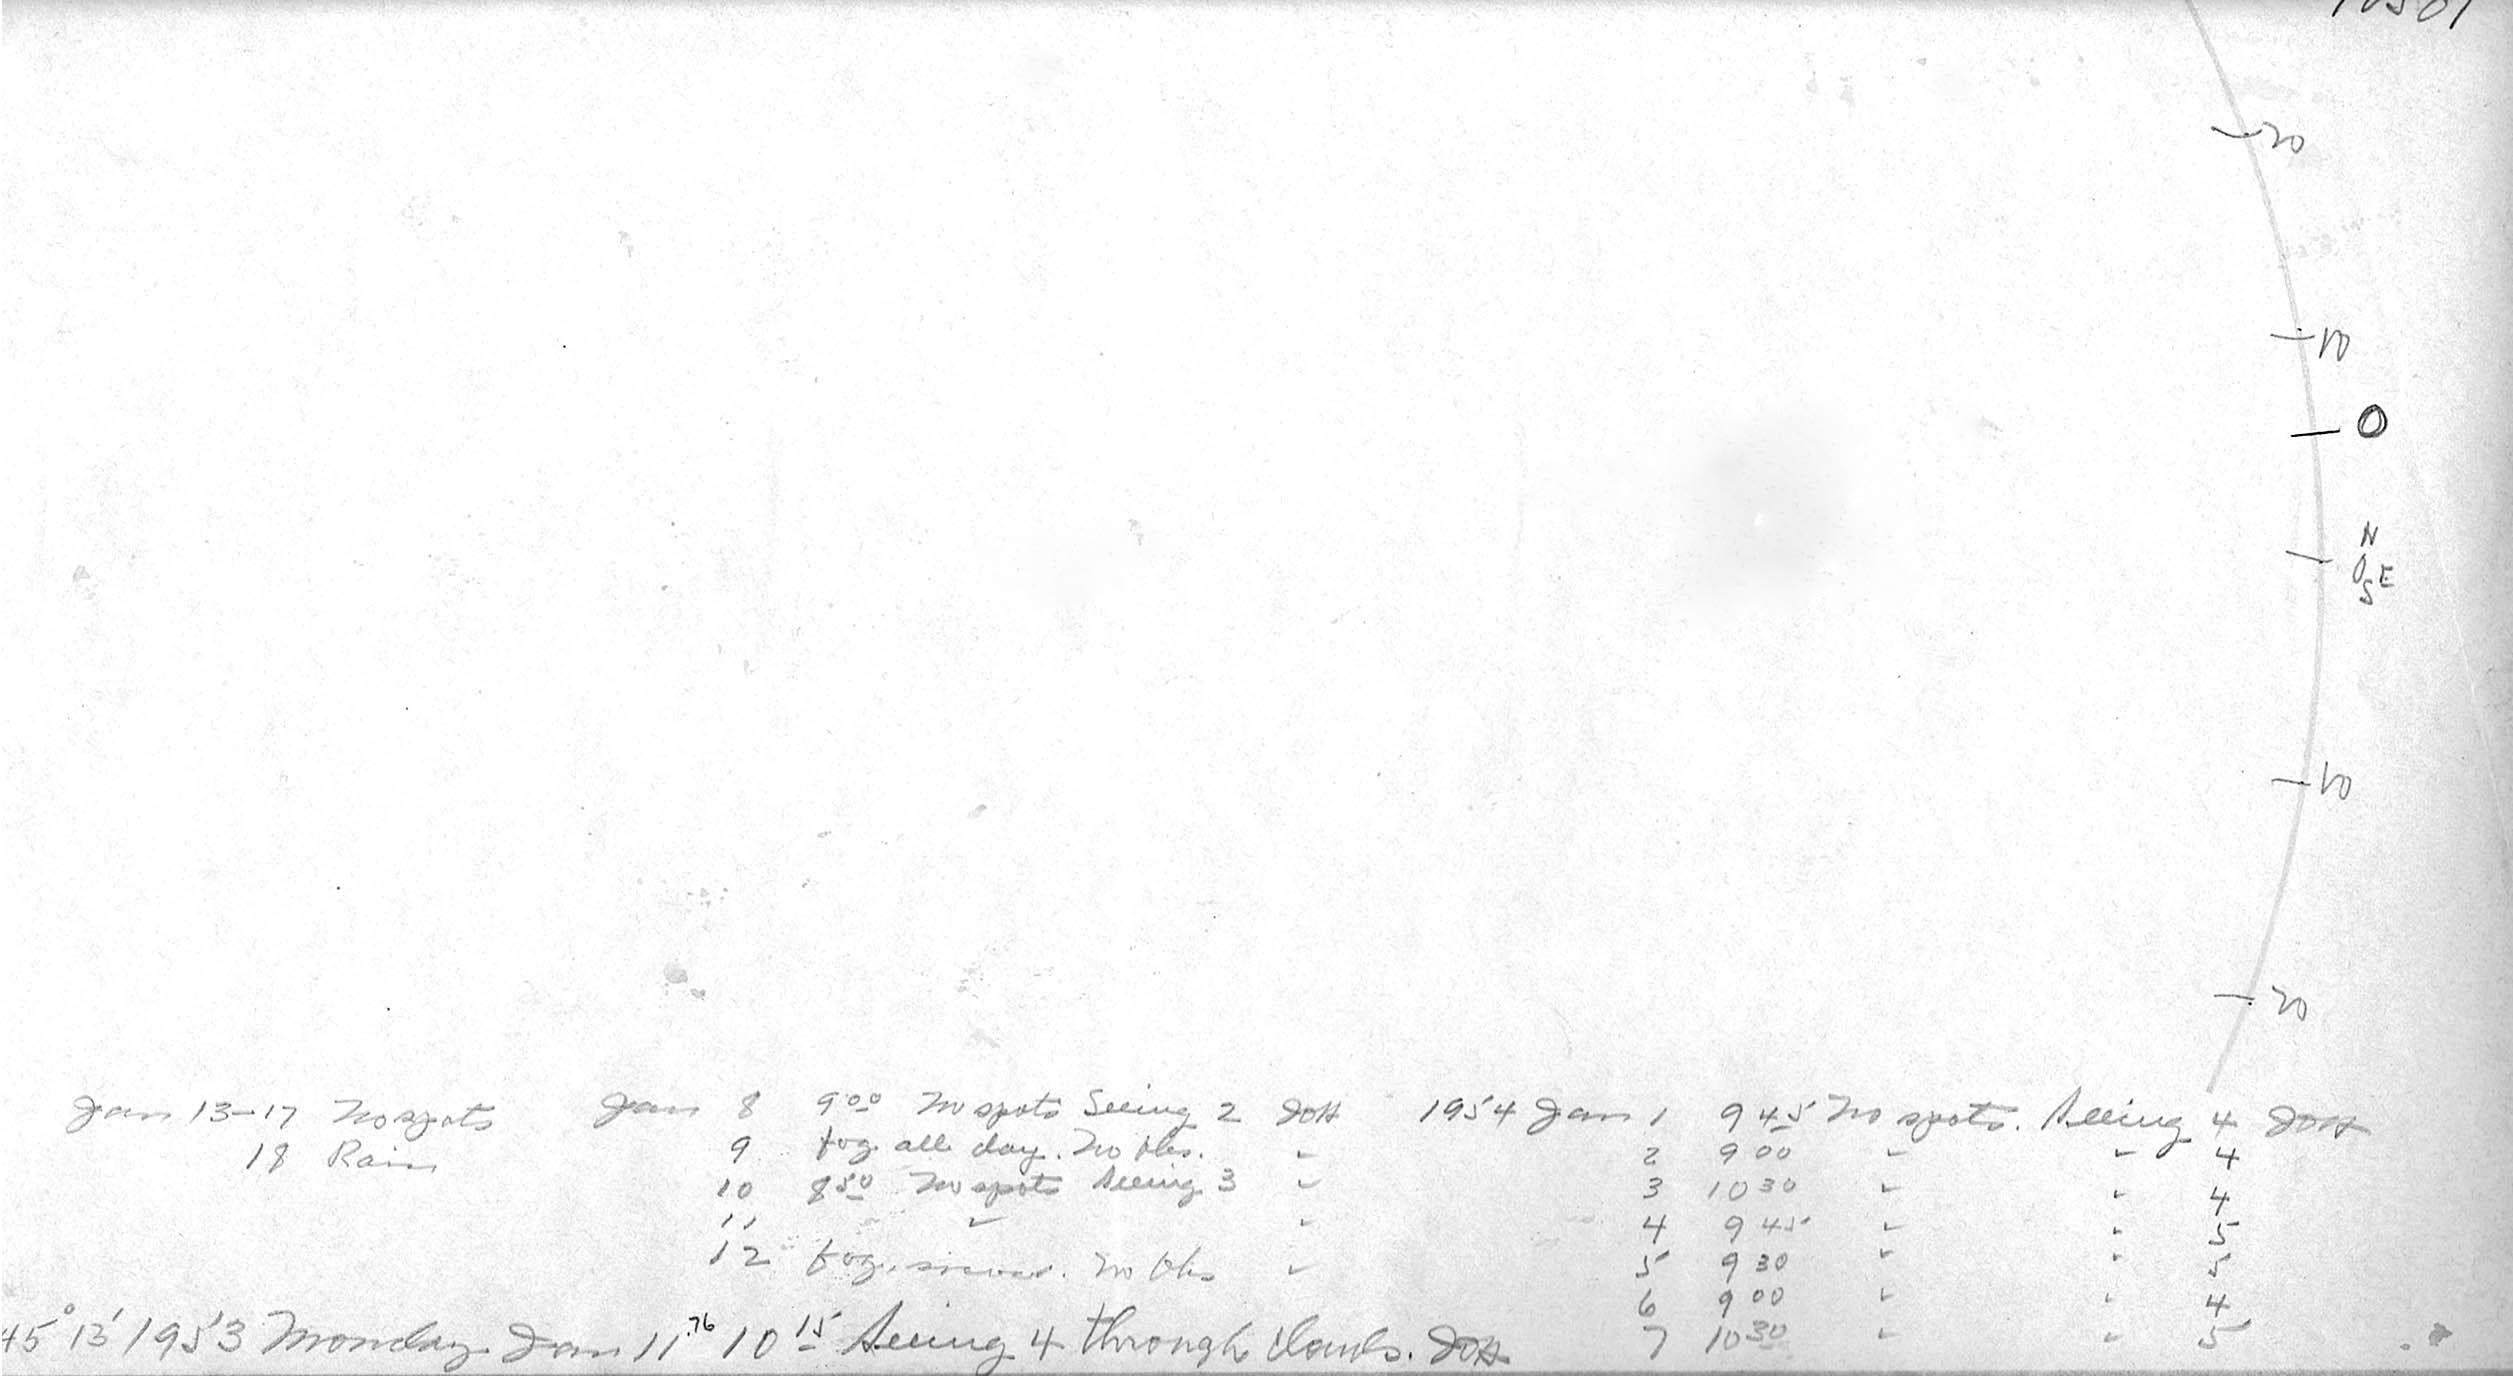 20
10
0
N
E
S
10
20
Jan 13-17 No spots
18 Rain
Jan 8 9 00 No spots Seeing 2 JOH
9 Fog all day. No Obs. "
10 8 50 No spots Seeing 3 "
11 " "
12 Fog, snow. No Obs "
1954 Jan 1 9 45 No spots. Seeing 4 JOH
2 9 00 " " 4
3 10 30 " " 4
4 9 45 " " 5
5 9 30 " " 5
6 9 00 " " 4
7 10 30 " " 5
45° 13' 1953 Monday Jan 11.76 10 15 Seeing 4 through clouds. JOH